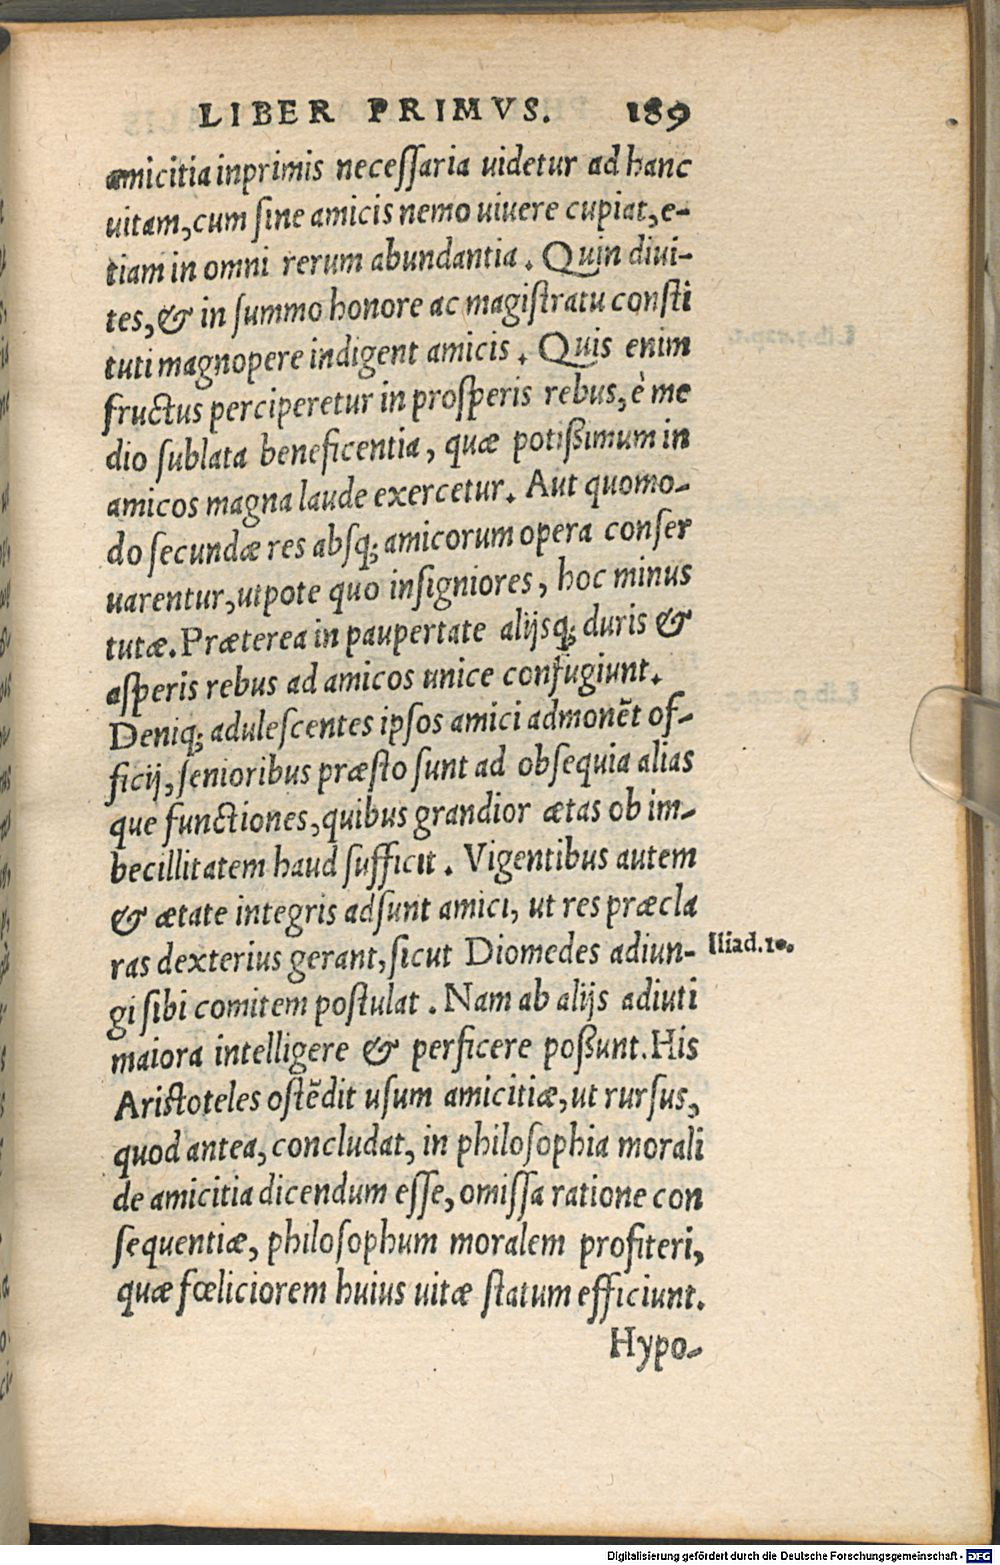 LIBER PRIMVS. 189
amicitia inprimis necessaria uidetur ad hanc
uitam, cum sine amicis nemo uiuere cupiat, e-
tiam in omni rerum abundantia. Quin diui-
tes, & in summo honore ac magistratu consti
tuti magnopere indigent amicis. Quis enim
fructus perciperetur in prosperis rebus, è me
dio sublata beneficentia, quæ potißimum in
amicos magna laude exercetur. Aut quomo-
do secundæ res absq; amicorum opera conser
uarentur, utpote quo insigniores, hoc minus
tutæ. Præterea in paupertate alijsq; duris &
asperis rebus ad amicos unice confugiunt.
Deniq; adulescentes ipsos amici admonēt of-
ficij, senioribus præsto sunt ad obsequia alias
que functiones, quibus grandior ætas ob im-
becillitatem haud sufficit. Vigentibus autem
& ætate integris adsunt amici, ut res præcla
ras dexterius gerant, sicut Diomedes adiun- Iliad.10.
gi sibi comitem postulat. Nam ab alijs adiuti
maiora intelligere & perficere poßunt. His
Aristoteles ostēdit usum amicitiæ, ut rursus,
quod antea, concludat, in philosophia morali
de amicitia dicendum esse, omissa ratione con
sequentiæ, philosophum moralem profiteri,
quæ fœliciorem huius uitæ statum efficiunt.
Hypo-
Digitalisierung gefördert durch die Deutsche Forschungsgemeinschaft - DFG